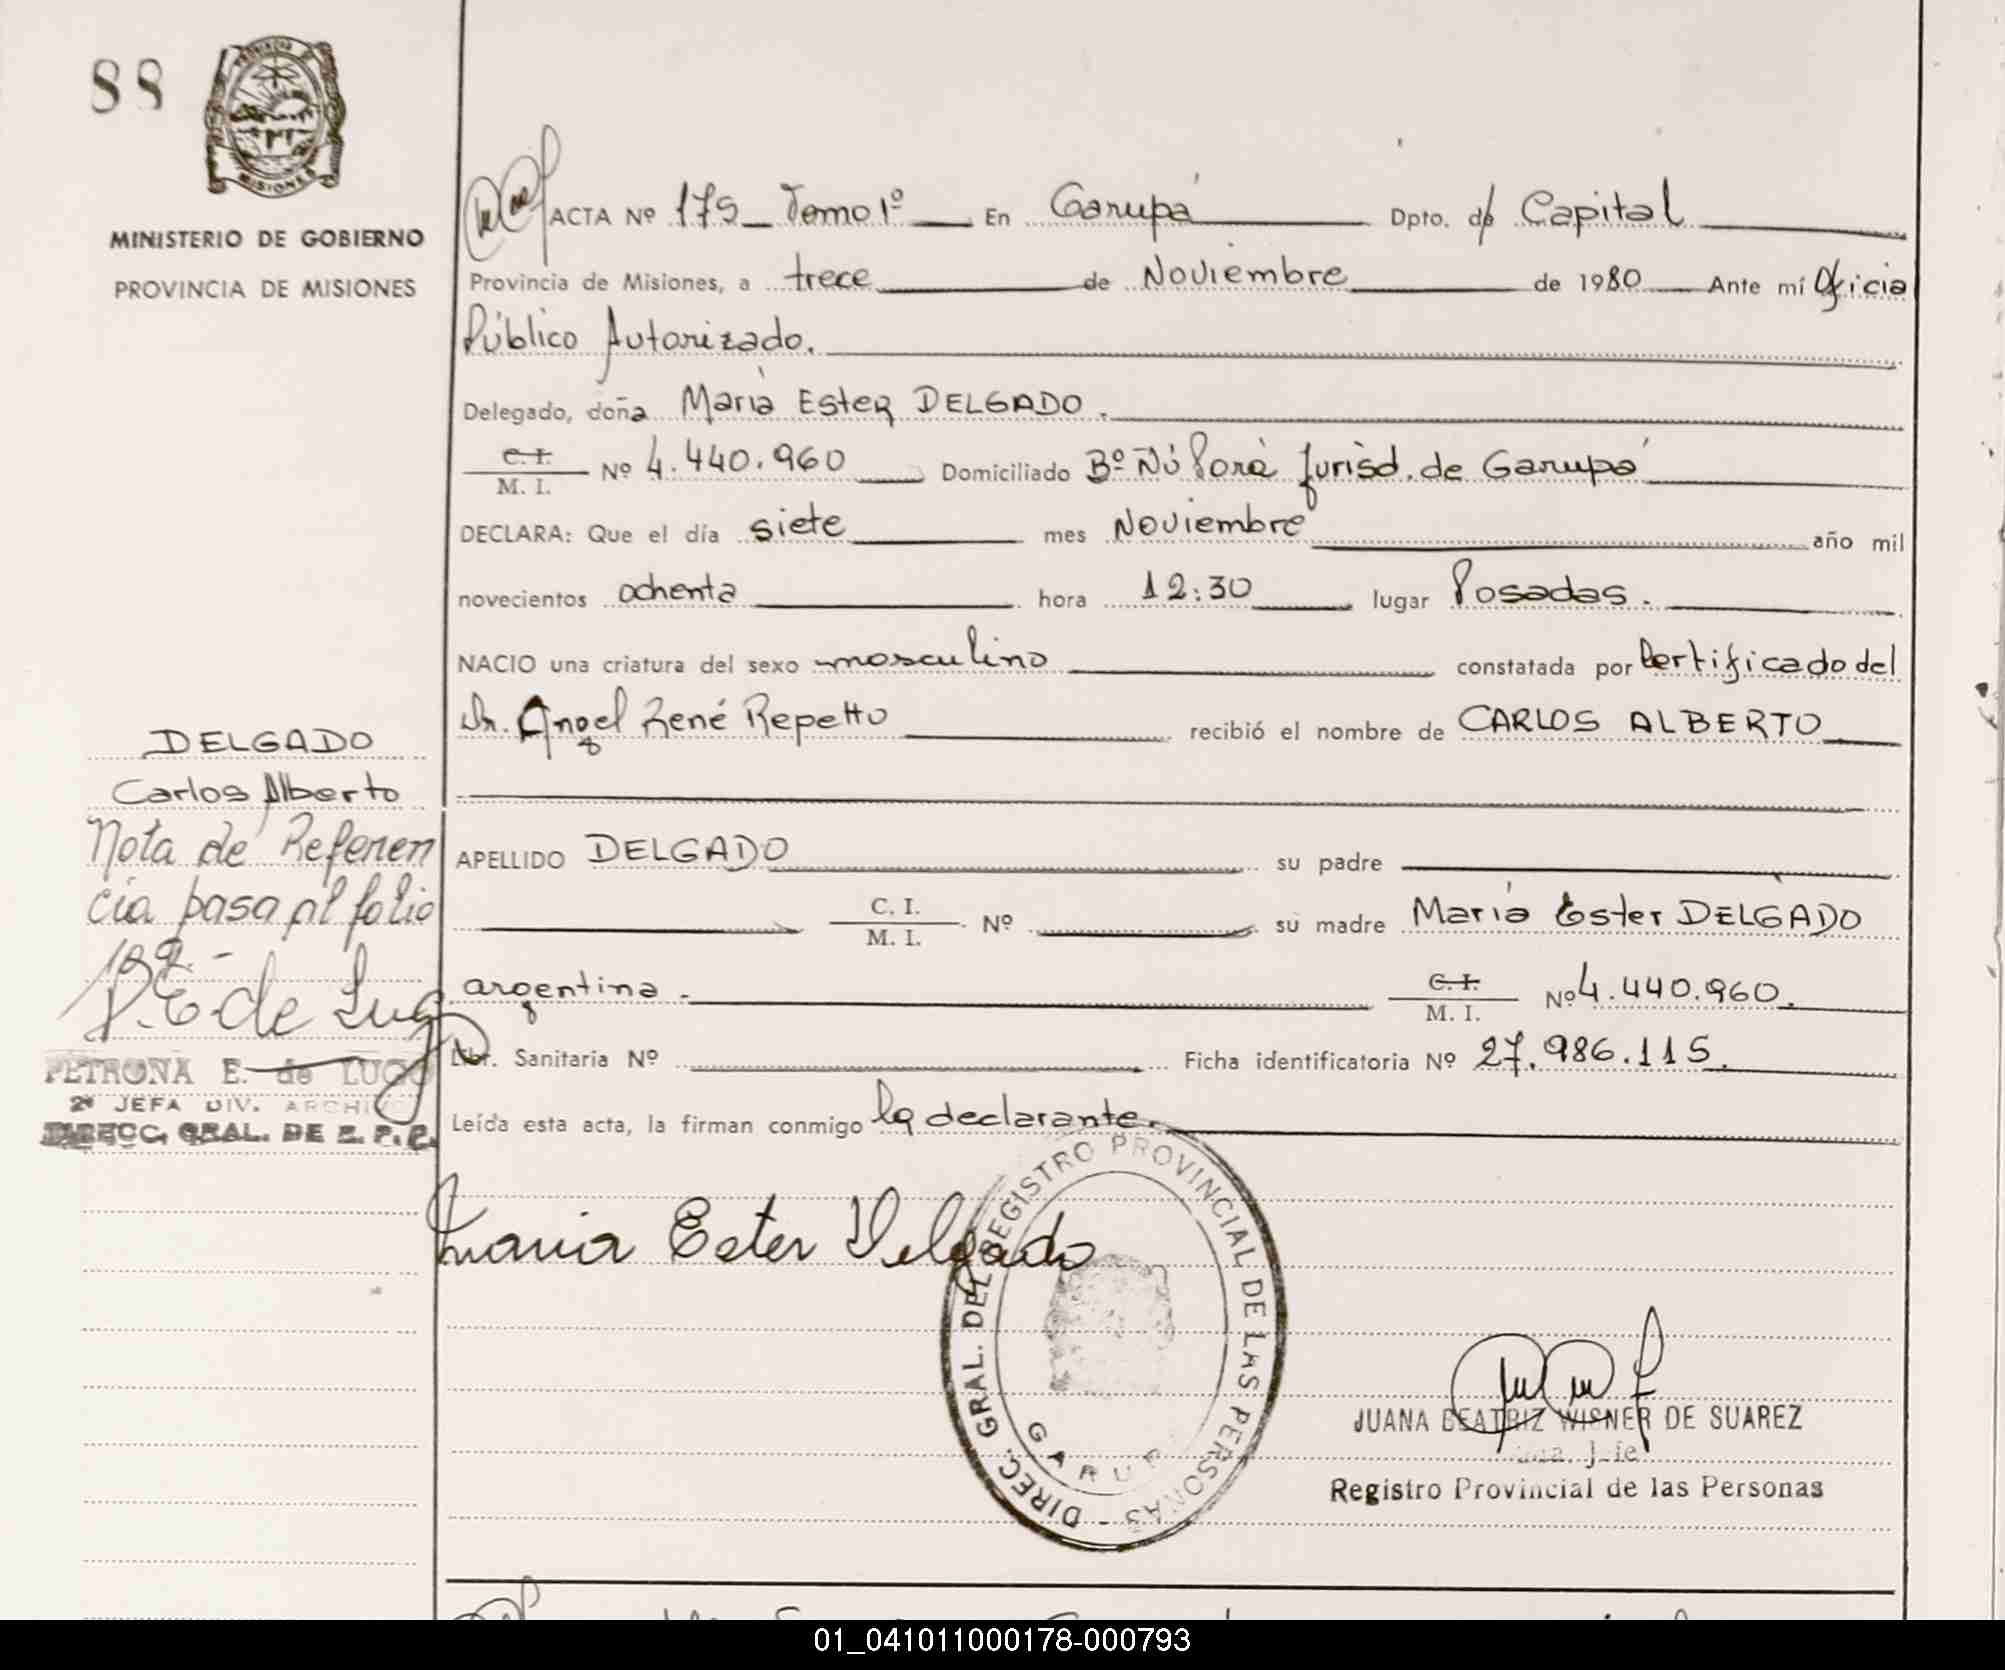 88
PROVINCIA DE
MISIONES
MINISTERIO DE GOBIERNO
PROVINCIA DE MISIONES
ACTA Nº 175 Tomo 1º En Garupá Dpto. de Capital
Provincia de Misiones, a trece de Noviembre de 1980 Ante mí Oficia
Público Autorizado.
Delegado, doña María Ester DELGADO.
C. I.
M. I. Nº 4.440.960 Domiciliado Bº Ñú Porá Jurisd. de Garupá
DECLARA: Que el día siete mes Noviembre año mil
novecientos ochenta hora 12:30 lugar Posadas.
NACIO una criatura del sexo masculino constatada por Certificado del
Dr. Angel René Repetto recibió el nombre de CARLOS ALBERTO
APELLIDO DELGADO su padre
C. I.
M. I. Nº su madre María Ester DELGADO
argentina. C. I.
M. I. Nº 4.440.960.
Libr. Sanitaria Nº Ficha identificatoria Nº 27.986.115.
Leída esta acta, la firman conmigo la declarante.
DELGADO
Carlos Alberto
Nota de Referen
cia pasa al folio
P. E. de Lugo
PETRONA E. de LUGO
2ª JEFA DIV. ARCHIVO
DIRECC. GRAL. DE R. P. P.
Maria Ester Delgado
DIRECC. GRAL. DEL REGISTRO PROVINCIAL DE LAS PERSONAS -
GARUP
JUANA BEATRIZ WISNER DE SUAREZ
Registro Provincial de las Personas
01_041011000178-000793